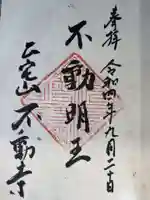 奉拝 令和四年九月二十日
不動明王
正宝山 不動寺